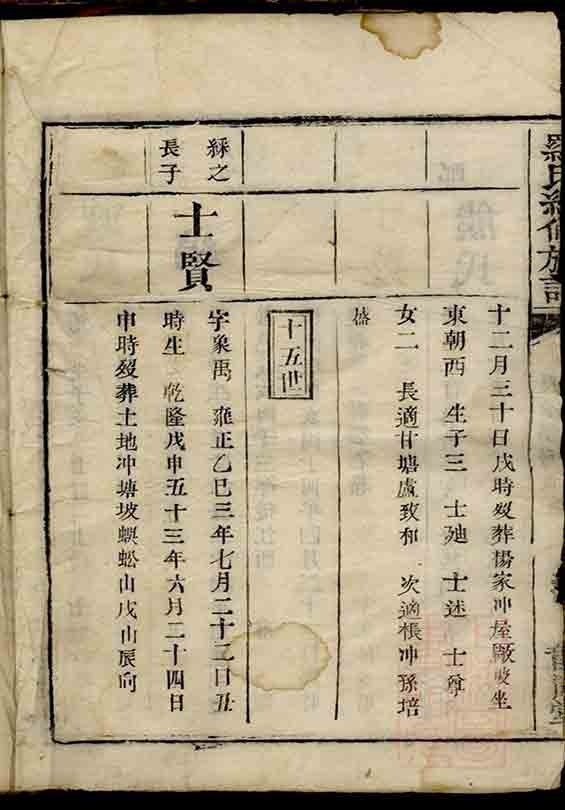 羅氏續修族譜
十二月三十日戌時歿葬楊家冲屋厰坡坐
東朝西 生子三 士 士述 士尊
女二 長適甘塘盧致和 次適楒冲孫培
盛
十五世
綵之長子
士賢
字象禹 雍正乙巳三年七月二十二日丑
時生 乾隆戊申五十三年六月二十四日
申時歿葬土地冲塘坡蜈蚣山戌山辰向